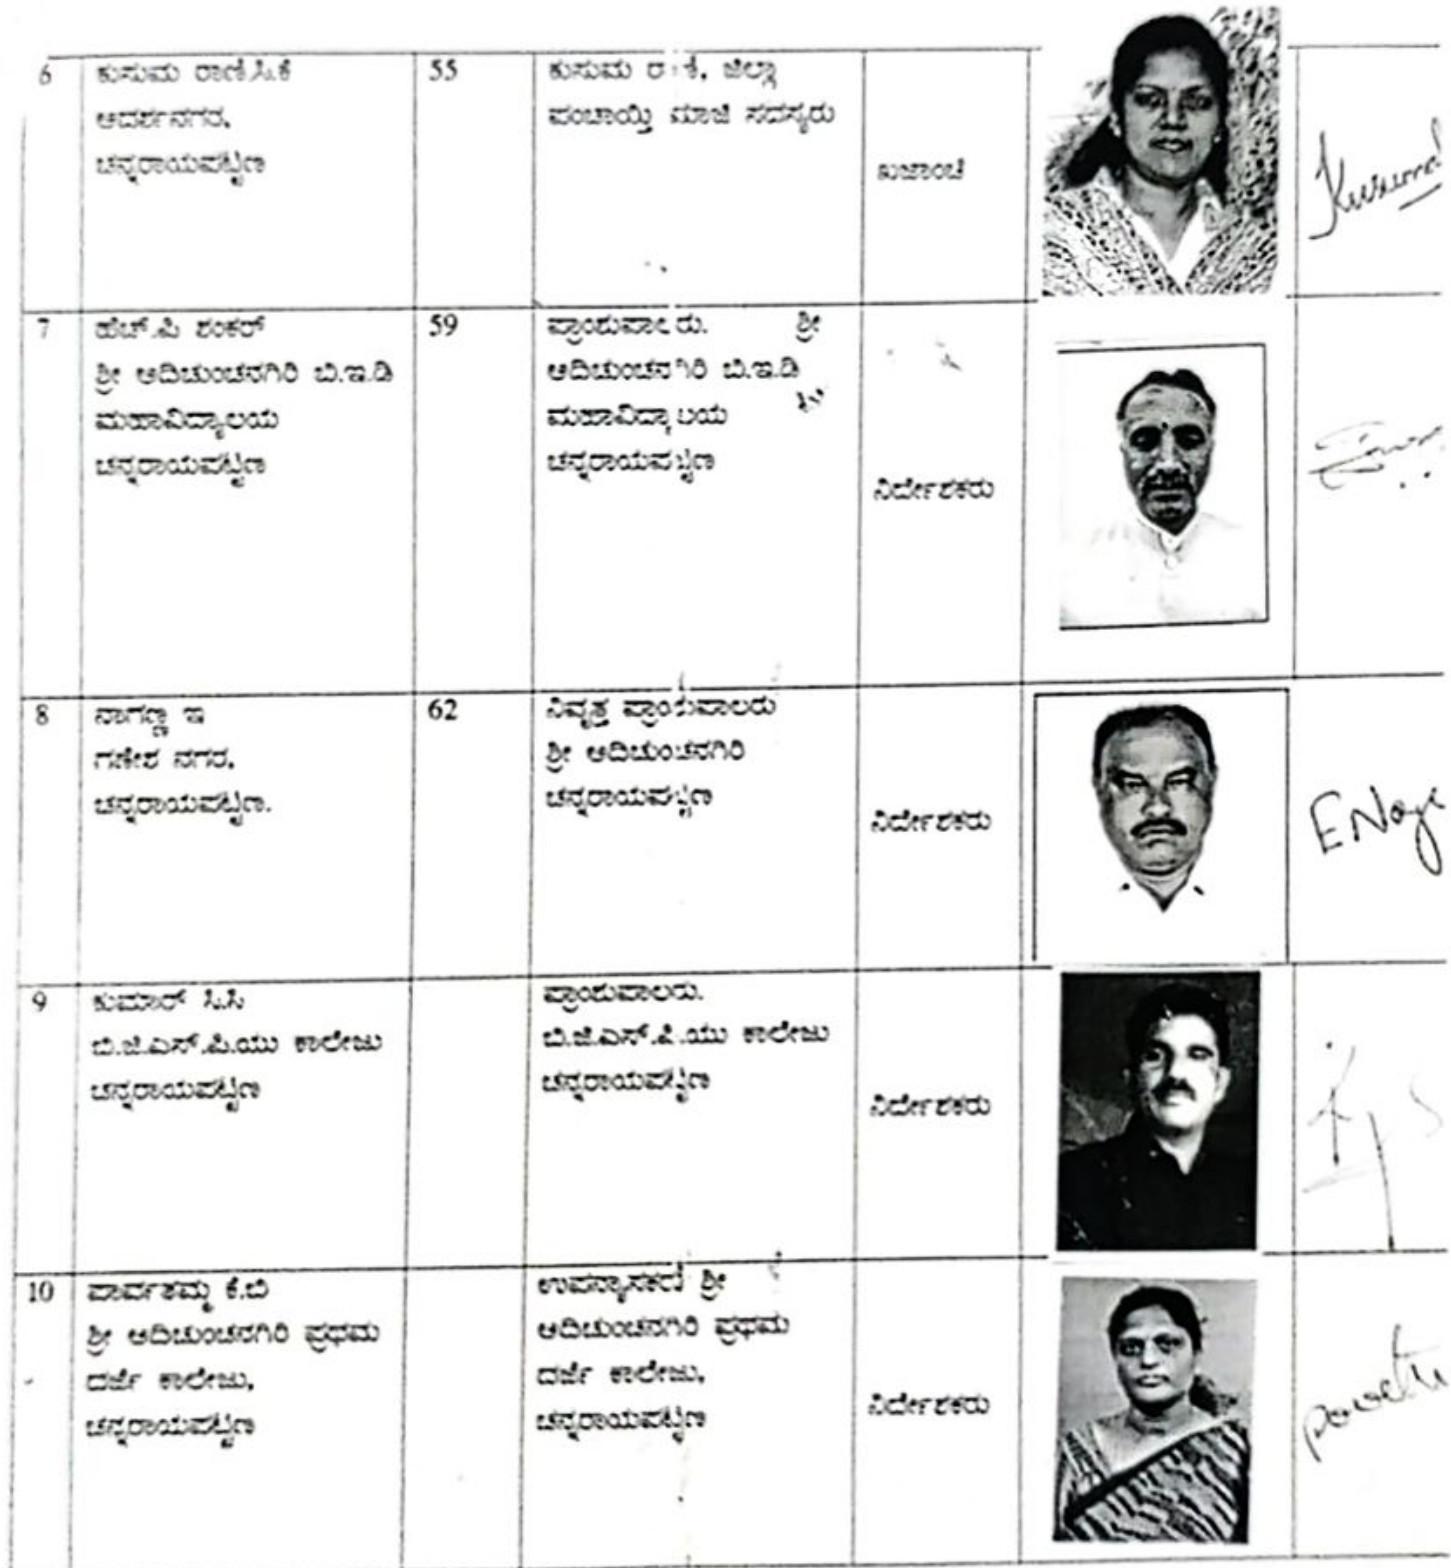 6
ಕುಸುಮ ರಾಣಿ.ಸಿ.ಕೆ
ಆದರ್ಶನಗರ,
ಚನ್ನರಾಯಪಟ್ಟಣ
55
ಕುಸುಮ ಕೆ, ಜಿಲ್ಲಾ
ಪಂಚಾಯ್ತಿ ಮಾಜಿ ಸದಸ್ಯರು
ಖಜಾಂಚಿ
Kusuma
7
ಹೆಚ್.ಪಿ ಶಂಕರ್
ಶ್ರೀ ಆದಿಚುಂಚನಗಿರಿ ಬಿ.ಇ.ಡಿ
ಮಹಾವಿದ್ಯಾಲಯ
ಚನ್ನರಾಯಪಟ್ಟಣ
59
ಪ್ರಾಂಶುಪಾಲರು. ಶ್ರೀ
ಆದಿಚುಂಚನಗಿರಿ ಬಿ.ಇ.ಡಿ
ಮಹಾವಿದ್ಯಾಲಯ
ಚನ್ನರಾಯಪಟ್ಟಣ
ನಿರ್ದೇಶಕರು
8
ನಾಗಣ್ಣ ಇ
ಗಣೇಶ ನಗರ,
ಚನ್ನರಾಯಪಟ್ಟಣ.
62
ನಿವೃತ್ತ ಪ್ರಾಂಶುಪಾಲರು
ಶ್ರೀ ಆದಿಚುಂಚನಗಿರಿ
ಚನ್ನರಾಯಪಟ್ಟಣ
ನಿರ್ದೇಶಕರು
E Nag
9
ಕುಮಾರ್ ಸಿ.ಸಿ
ಬಿ.ಜಿ.ಎಸ್.ಪಿ.ಯು ಕಾಲೇಜು
ಚನ್ನರಾಯಪಟ್ಟಣ
ಪ್ರಾಂಶುಪಾಲರು.
ಬಿ.ಜಿ.ಎಸ್.ಪಿ.ಯು ಕಾಲೇಜು
ಚನ್ನರಾಯಪಟ್ಟಣ
ನಿರ್ದೇಶಕರು
10
ಪಾರ್ವತಮ್ಮ ಕೆ.ಬಿ
ಶ್ರೀ ಆದಿಚುಂಚನಗಿರಿ ಪ್ರಥಮ
ದರ್ಜೆ ಕಾಲೇಜು,
ಚನ್ನರಾಯಪಟ್ಟಣ
ಉಪನ್ಯಾಸಕರು ಶ್ರೀ
ಆದಿಚುಂಚನಗಿರಿ ಪ್ರಥಮ
ದರ್ಜೆ ಕಾಲೇಜು,
ಚನ್ನರಾಯಪಟ್ಟಣ
ನಿರ್ದೇಶಕರು